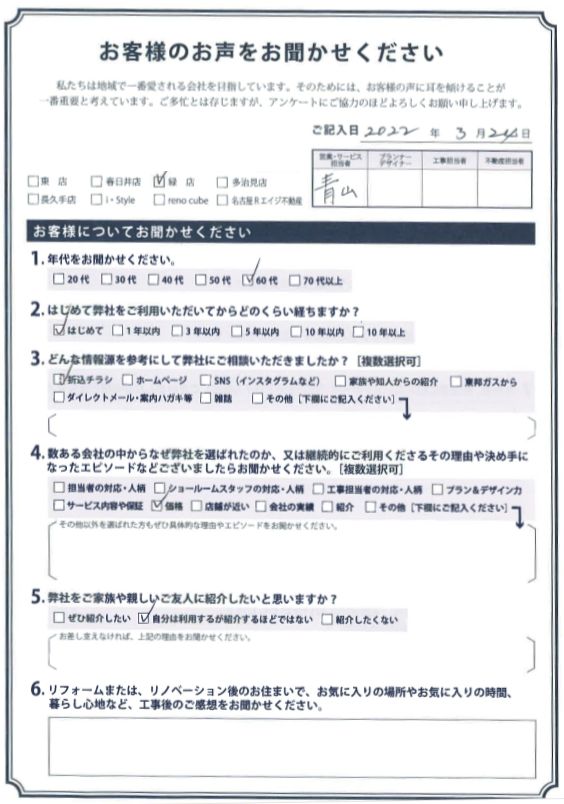 お客様のお声をお聞かせください
私たちは地域で一番愛される会社を目指しています。そのためには、お客様の声に耳を傾けることが
一番重要と考えています。ご多忙とは存じますが、アンケートにご協力のほどよろしくお願い申し上げます。
ご記入日 2022 年 3 月 24 日
営業・サービス担当者 プランナーデザイナー 工事担当者 不動産担当者
青山
□東 店 □春日井店 ☑緑 店 □多治見店
□長久手店 □i・Style □reno cube □名古屋Rエイジ不動産
お客様についてお聞かせください
1. 年代をお聞かせください。
□20代 □30代 □40代 □50代 ☑60代 □70代以上
2. はじめて弊社をご利用いただいてからどのくらい経ちますか?
☑はじめて □1年以内 □3年以内 □5年以内 □10年以内 □10年以上
3. どんな情報源を参考にして弊社にご相談いただきましたか?［複数選択可］
☑折込チラシ □ホームページ □SNS（インスタグラムなど） □家族や知人からの紹介 □東邦ガスから
□ダイレクトメール・案内ハガキ等 □雑誌 □その他［下欄にご記入ください］
4. 数ある会社の中からなぜ弊社を選ばれたのか、又は継続的にご利用くださるその理由や決め手に
なったエピソードなどございましたらお聞かせください。［複数選択可］
□担当者の対応・人柄 □ショールームスタッフの対応・人柄 □工事担当者の対応・人柄 □プラン&デザイン力
□サービス内容や保証 ☑価格 □店舗が近い □会社の実績 □紹介 □その他［下欄にご記入ください］
その他以外を選ばれた方もぜひ具体的な理由やエピソードをお聞かせください。
5. 弊社をご家族や親しいご友人に紹介したいと思いますか?
□ぜひ紹介したい ☑自分は利用するが紹介するほどではない □紹介したくない
お差し支えなければ、上記の理由をお聞かせください。
6. リフォームまたは、リノベーション後のお住まいで、お気に入りの場所やお気に入りの時間、
暮らし心地など、工事後のご感想をお聞かせください。